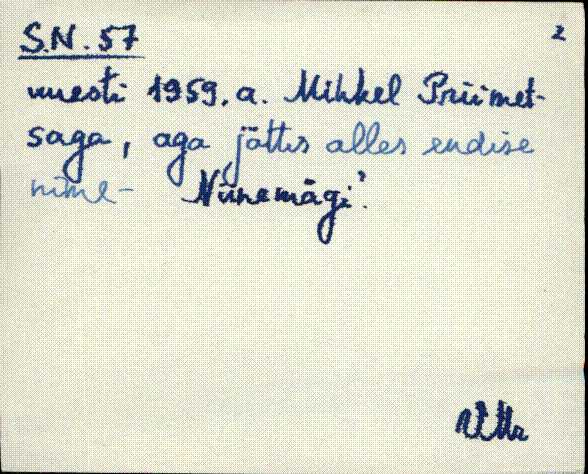 S.N. 57 2
uuesti 1959. a. Mihkel Priimet-
saga, aga jättis alles endise
nime - Niinemägi?.